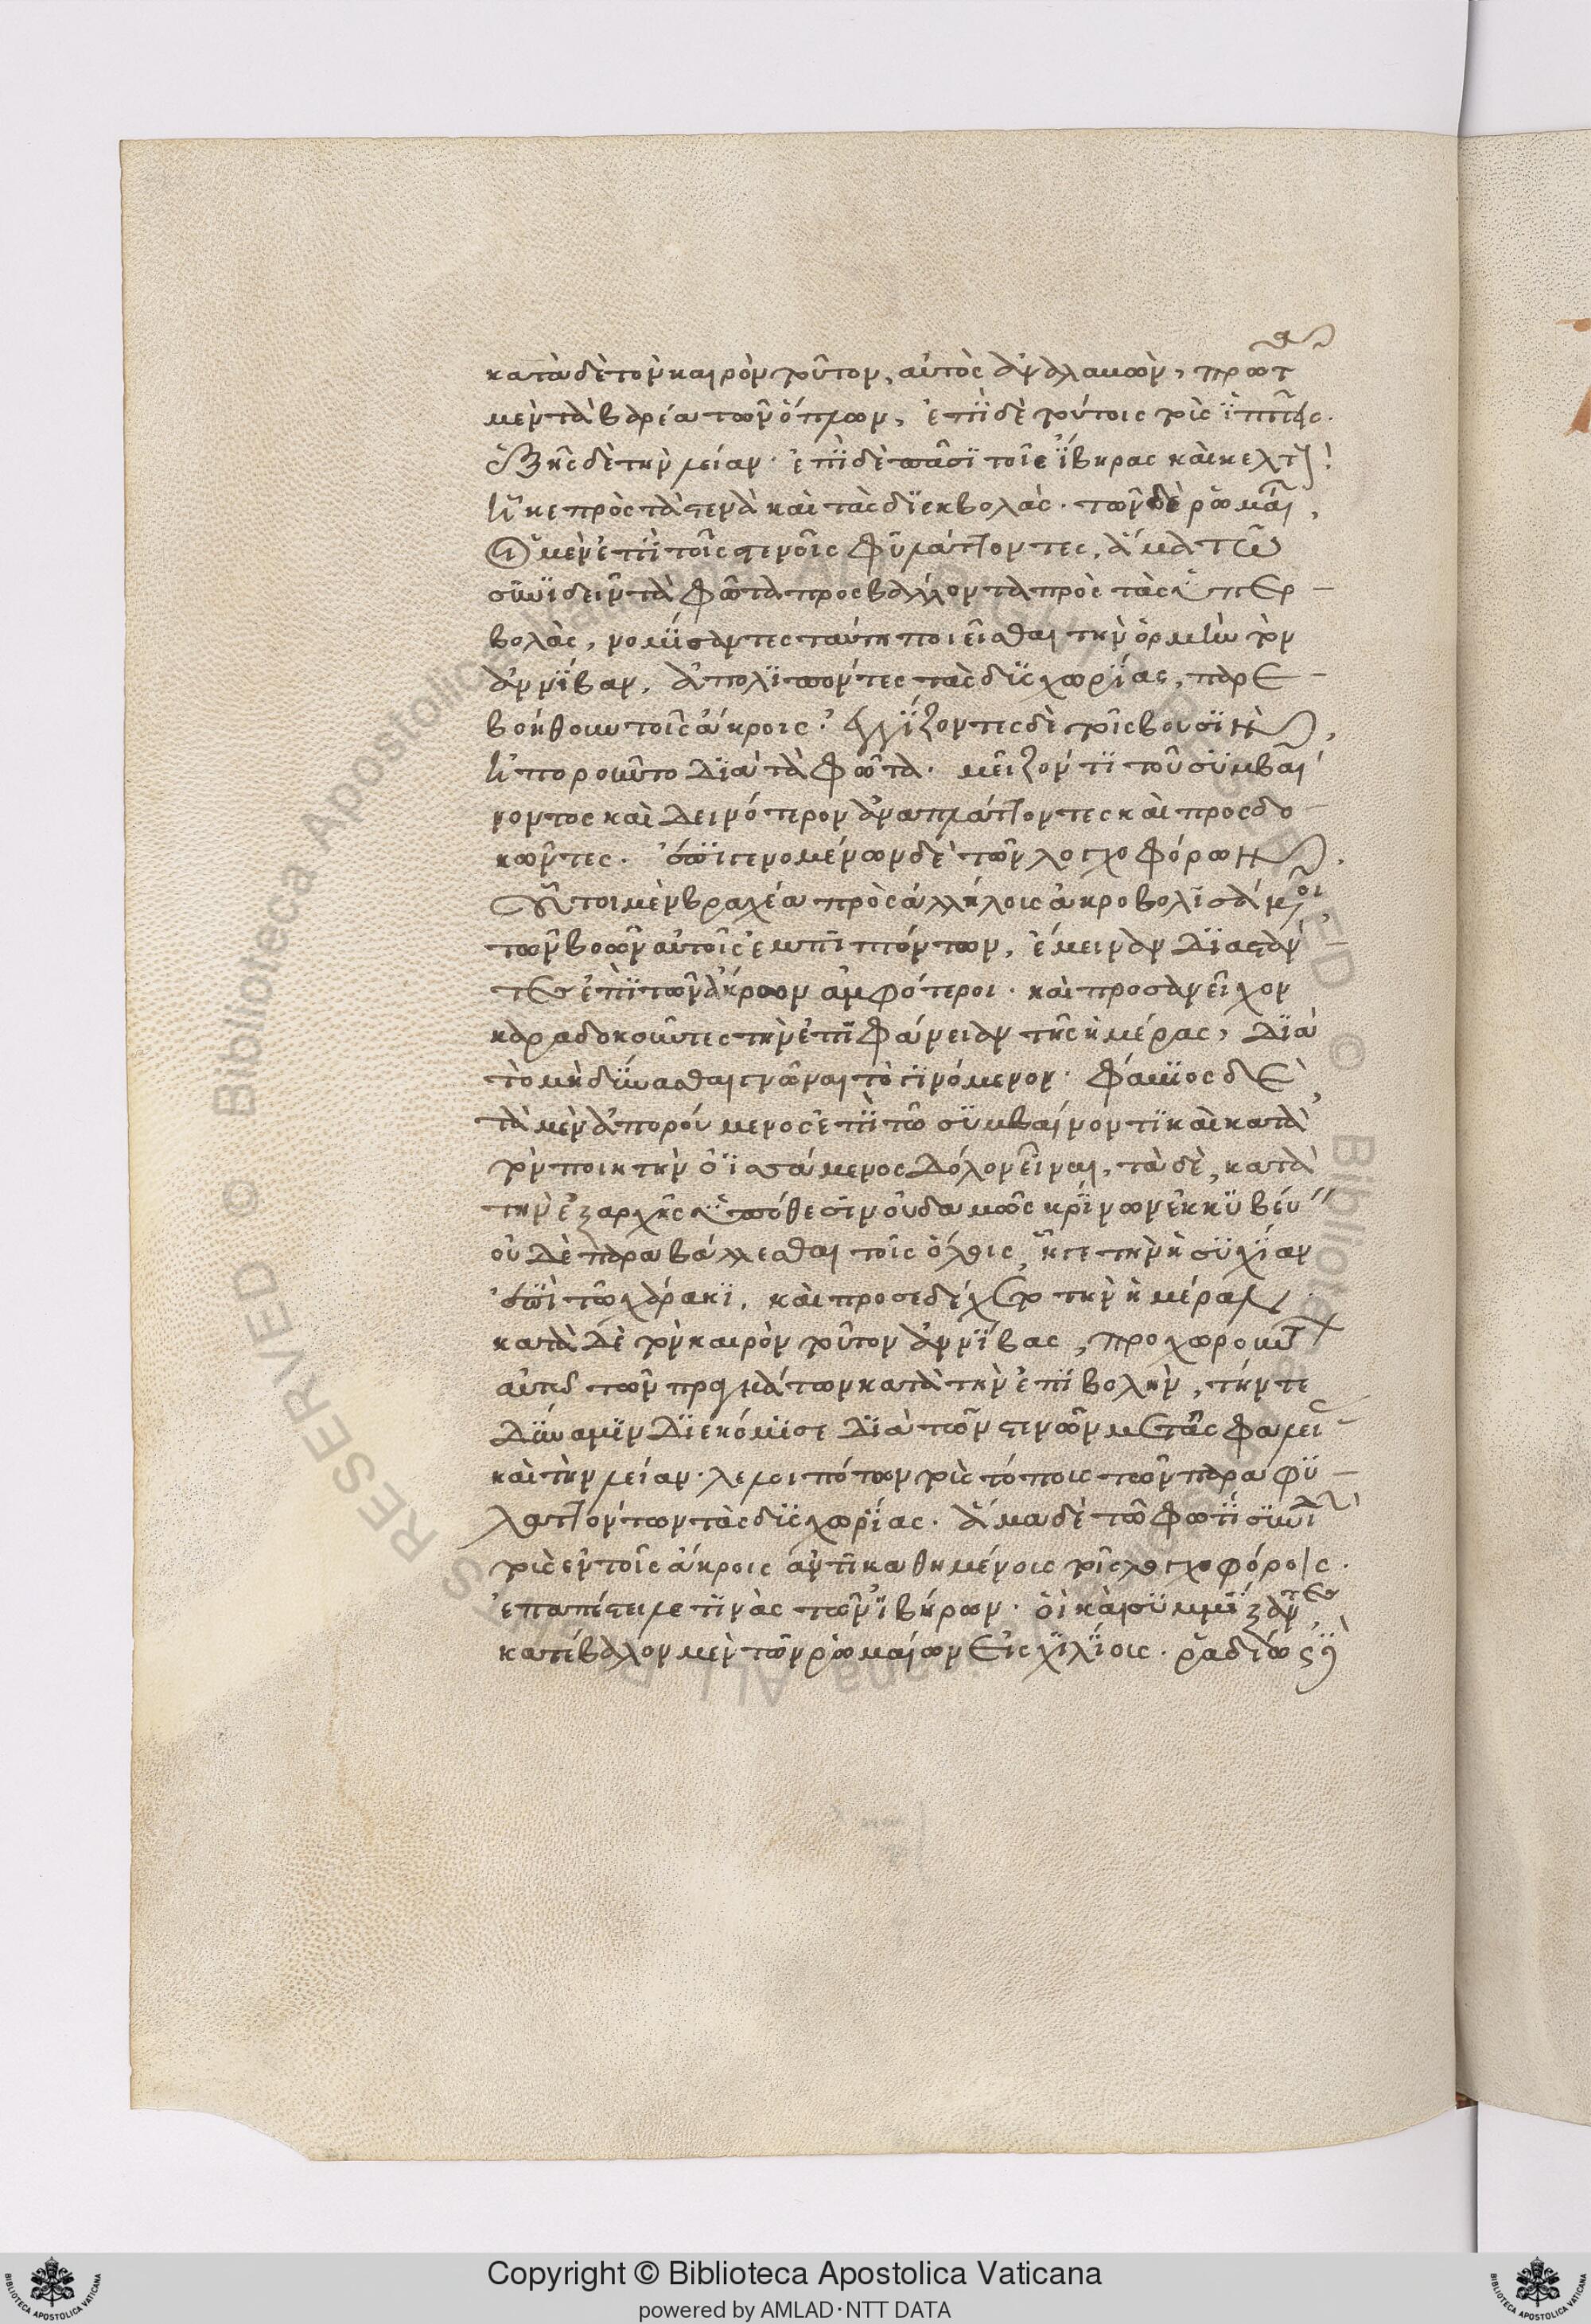 κατὰ δὲ τὸν καιρὸν τοῦτον, αὐτὸς ἀναλαμὼν, πρῶτα
μὲν τὰ βαρέα τῶν ὅπλων, ἐπὶ δὲ τούτοις τοὺς ἱππεῖς.
ἑξῆς δὲ τὴν λείαν· ἐπὶ δὲ πᾶσι τοὺς ἴβηρας καὶ κελτοὺς
ἧκε πρὸς τὰ στενὰ καὶ τὰς διεκβολάς· τῶν δὲ ῥωμαίων,
οἱ μὲν ἐπὶ τοῖς στενοῖς φυλάττοντες, ἅμα τῶ
συνιδεῖν τὰ φῶτα προσβάλλοντα πρὸς τὰς ὑπερ
βολὰς, νομίσαντες ταύτη ποιεῖσθαι τὴν ὁρμὴν τὸν
ἀννίβαν, ἀπολιπόντες τὰς δυσχωρίας, παρε
βοήθουν τοῖς ἄκροις· ἐγγίζοντες δὲ τοῖς βουσὶν,
ἠποροῦντο διὰ τὰ φῶτα· μεῖζόν τι τοῦ συμβαί
νοντος καὶ δεινότερον ἀναπλάττοντες καὶ προσδο
κῶντες. ἐπιγενομένων δὲ τῶν λογχοφόρων,
οὗτοι μὲν βραχέα πρὸς ἀλλήλους ἀκροβολισάμενοι
τῶν βοῶν αὐτοῖς ἐμπιπτόντων, ἔμειναν διαστάν
τες ἐπὶ τῶν ἄκρων ἀμφότεροι· καὶ προσανεῖχον
καραδοκοῦντες τὴν ἐπιφάνειαν τῆς ἡμέρας, διὰ
τὸ μὴ δύνασθαι γνῶναι τὸ γινόμενον· φάμιος δὲ
τὰ μὲν ἀπορούμενος ἐπὶ τῶ συμβαίνοντι καὶ κατὰ
τὸν ποιητὴν ὀϊσάμενος δόλον εἶναι, τὰ δὲ, κατὰ
τὴν ἐξαρχῆς ὑπόθεσιν οὐδαμῶς κρίνων ἐκκυβεύ
οὐδὲ παραβάλλεσθαι τοῖς ὅλοις, ἦγε τὴν ἡσυχίαν
ἐπὶ τῶ χάρακι. καὶ προσεδέχετο τὴν ἡμέραν.
κατὰ δὲ τὸν καιρὸν τοῦτον ἀννίβας, προχωρουντ
αὐτῶ τῶν πραγμάτων κατὰ τὴν ἐπιβολὴν, τήν τε
δύναμιν διεκόμισε διὰ τῶν στενῶν μετασφαλεί
καὶ τὴν λείαν· λελοιπότων τοὺς τόπους τῶν παραφυ
λαττόντων τὰς δυσχωρίας. ἅμα δὲ τῶ φωτὶ συνιδὼν
τοὺς ἐν τοῖς ἄκροις ἀντικαθημένους τοῖς λογχοφόροις.
ἐπαπέστειλέ τινας τῶν ἰβήρων· οἳ καὶ συμμίξαντες
κατέβαλον μὲν τῶν ῥωμαίων εἰς χιλίους· ῥαδίως δὲ